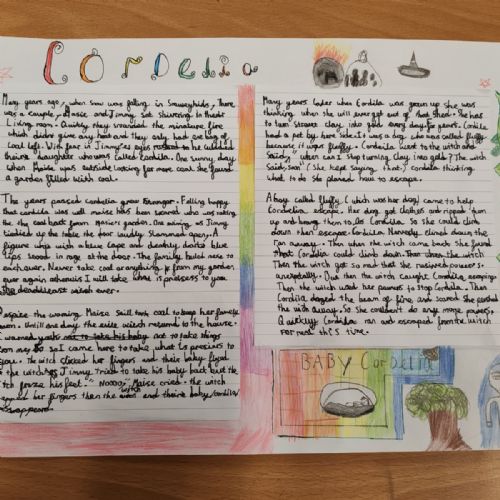 Cordelia
Many years ago, when snow was falling in
was a couple, Maisie and Jimmy sat shivering in their
Living room. Quickly they the minature fire
which didnt give any heat and they only had one bag of
coal left. With fear in Jimmy's eyes to he
their daughter who was called Cordelia. One sunny day
when Maise was outside looking for more coal she found
a garden filled with coal.
The years passed Cordelia grew stronger. Falling happy
that Cordelia was well maise has been scared who was eating
the coal beast from garden. One evening as Jimmy
the table the door loudly slammed open. A
figure with a blue cape and deathly dark blue
lips stood in rage at the door. The family huled near to
eachover. Never take coal or anything from my garden,
ever again otherwis I will take what is precious to you.
The deadliest witch ever.
Despite the warning Maise still took coal to keep her family
warm. Untill one day the evile witch returnd to the house.
I warned you not to take things
from me so I came here to take what is precious to
you. The witch clicked her fingers and their baby flyed
to the witch. Jimmy tried to take his baby back but the
witch froze his feet. "Nooo," Maise cried. The witch
her fingers then the witch and their baby Cordelia
Many years later when Cordila was grown up she was
thinking when she will ever get out of that shed. She has
to turn clay into gold every day for years. Cordila
had a pet by here side. It was a dog she was called fluffy
because it was fluffy. Cordila went to the witch and
said, when can I stop turning clay into gold? The witch
said, soon (She kept saying that) Cordila thinking
what to do she planed how to escape.
A hog called fluffy (which was her dog) came to help
Cordelia escape. Her dog got clothes and ripped them
up and hung them to Cordila. So she could climb
down then escape. Cordila Nervesly climed down the
ran away. Then when the witch came back she found
that Cordila could climb down. Then when the witch
Then the witch got so mad that she resived powers
Then the witch caught Cordila escaping
Then the witch used her powers to stop Cordila. Then
Cordila doged the beam of fire, and scared the
the wich away. So she couldn't do any more powers.
Quickly Cordila ran and escaped from the witch
for real this time.
BABY Cordelia